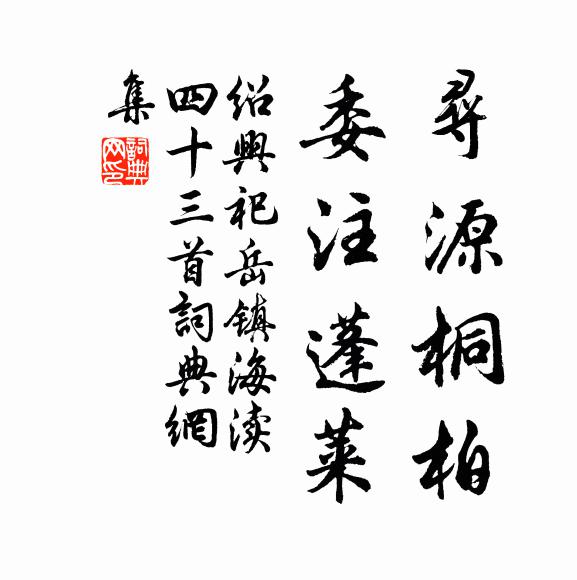 尋源桐柏
委注蓬萊
紹興祀岳镇海渎
四十三首詞典網
集
詞典
网印